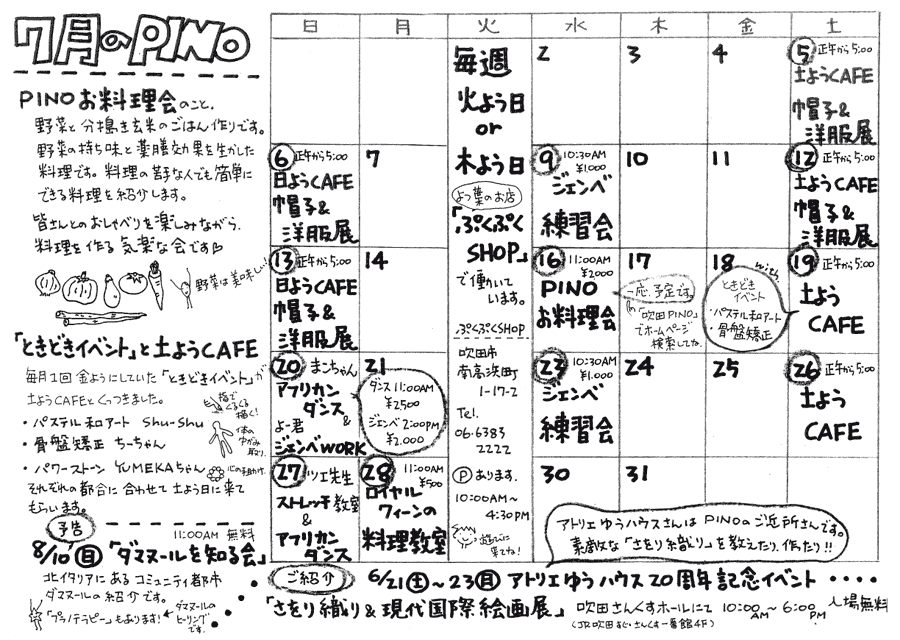 7月のPINO
PINOお料理会のこと。
野菜と分搗き玄米のごはん作りです。
野菜の持ち味と薬膳効果を生かした
料理です。料理の苦手な人でも簡単に
できる料理を紹介します。
皆さんとのおしゃべりを楽しみながら、
料理を作る気楽な会です
野菜は美味しい!
「ときどきイベント」と土ようCAFE
毎月1回金ようにしていた「ときどきイベント」が
土ようCAFEとくっつきました。
・パステル和アート Shu-Shu
指でくるくる描く!
・骨盤矯正 ちーちゃん
体のゆがみ取り
・パワーストーン YUMEKAちゃん
心の手助け
それぞれの都合に合わせて土よう日に来て
もらいます。
予告
11:00AM 無料
8/10(日)「ダマヌールを知る会」
北イタリアにあるコミュニティ都市
ダマヌールの紹介です。
「プラノテラピー」もあります!
ダマヌールの
ヒーリング
です。
日 月 火 水 木 金 土
毎週
火よう日
or
木よう日
よつ葉のお店
「ぷくぷく
SHOP」
で働いて
います。
ぷくぷくSHOP
吹田市
南高浜町
1-17-2
Tel.
06・6383
2222
Pあります。
10:00AM~
4:30PM
遊びに
来てね!
2
3
4
5 正午から5:00
土ようCAFE
帽子&
洋服展
6 正午から5:00
日ようCAFE
帽子&
洋服展
7
9 10:30AM
¥1.000
ジェンベ
練習会
10
11
12 正午から5:00
土ようCAFE
帽子&
洋服展
13 正午から5:00
日ようCAFE
帽子&
洋服展
14
16 11:00AM
¥2000
PINO
お料理会
17
一応、予定です。
「吹田PINO」
でホームページ
検索してね。
18
with
ときどき
イベント
・パステル和アート
・骨盤矯正
19 正午から5:00
土よう
CAFE
20 まんちゃん
アフリカン
ダンス
&
よー君
ジェンベWORK
21
ダンス11:00AM
¥2500
ジェンベ2:00PM
¥2.000
23 10:30AM
¥1.000
ジェンベ
練習会
24
25
26 正午から5:00
土よう
CAFE
27 ツエ先生
ストレッチ教室
&
アフリカン
ダンス
28 11:00AM
¥500
ロイヤル
クィーンの
料理教室
30
31
アトリエゆうハウスさんはPINOのご近所さんです。
素敵な「さをり織り」を教えたり、作たり!!
ご紹介
6/21(土)~23(月) アトリエゆうハウス20周年記念イベント・・・・
「さをり織り&現代国際絵画展」 吹田さんくすホールにて 10:00AM~6:00PM 入場無料
(JR吹田 さんくす一番館4F)